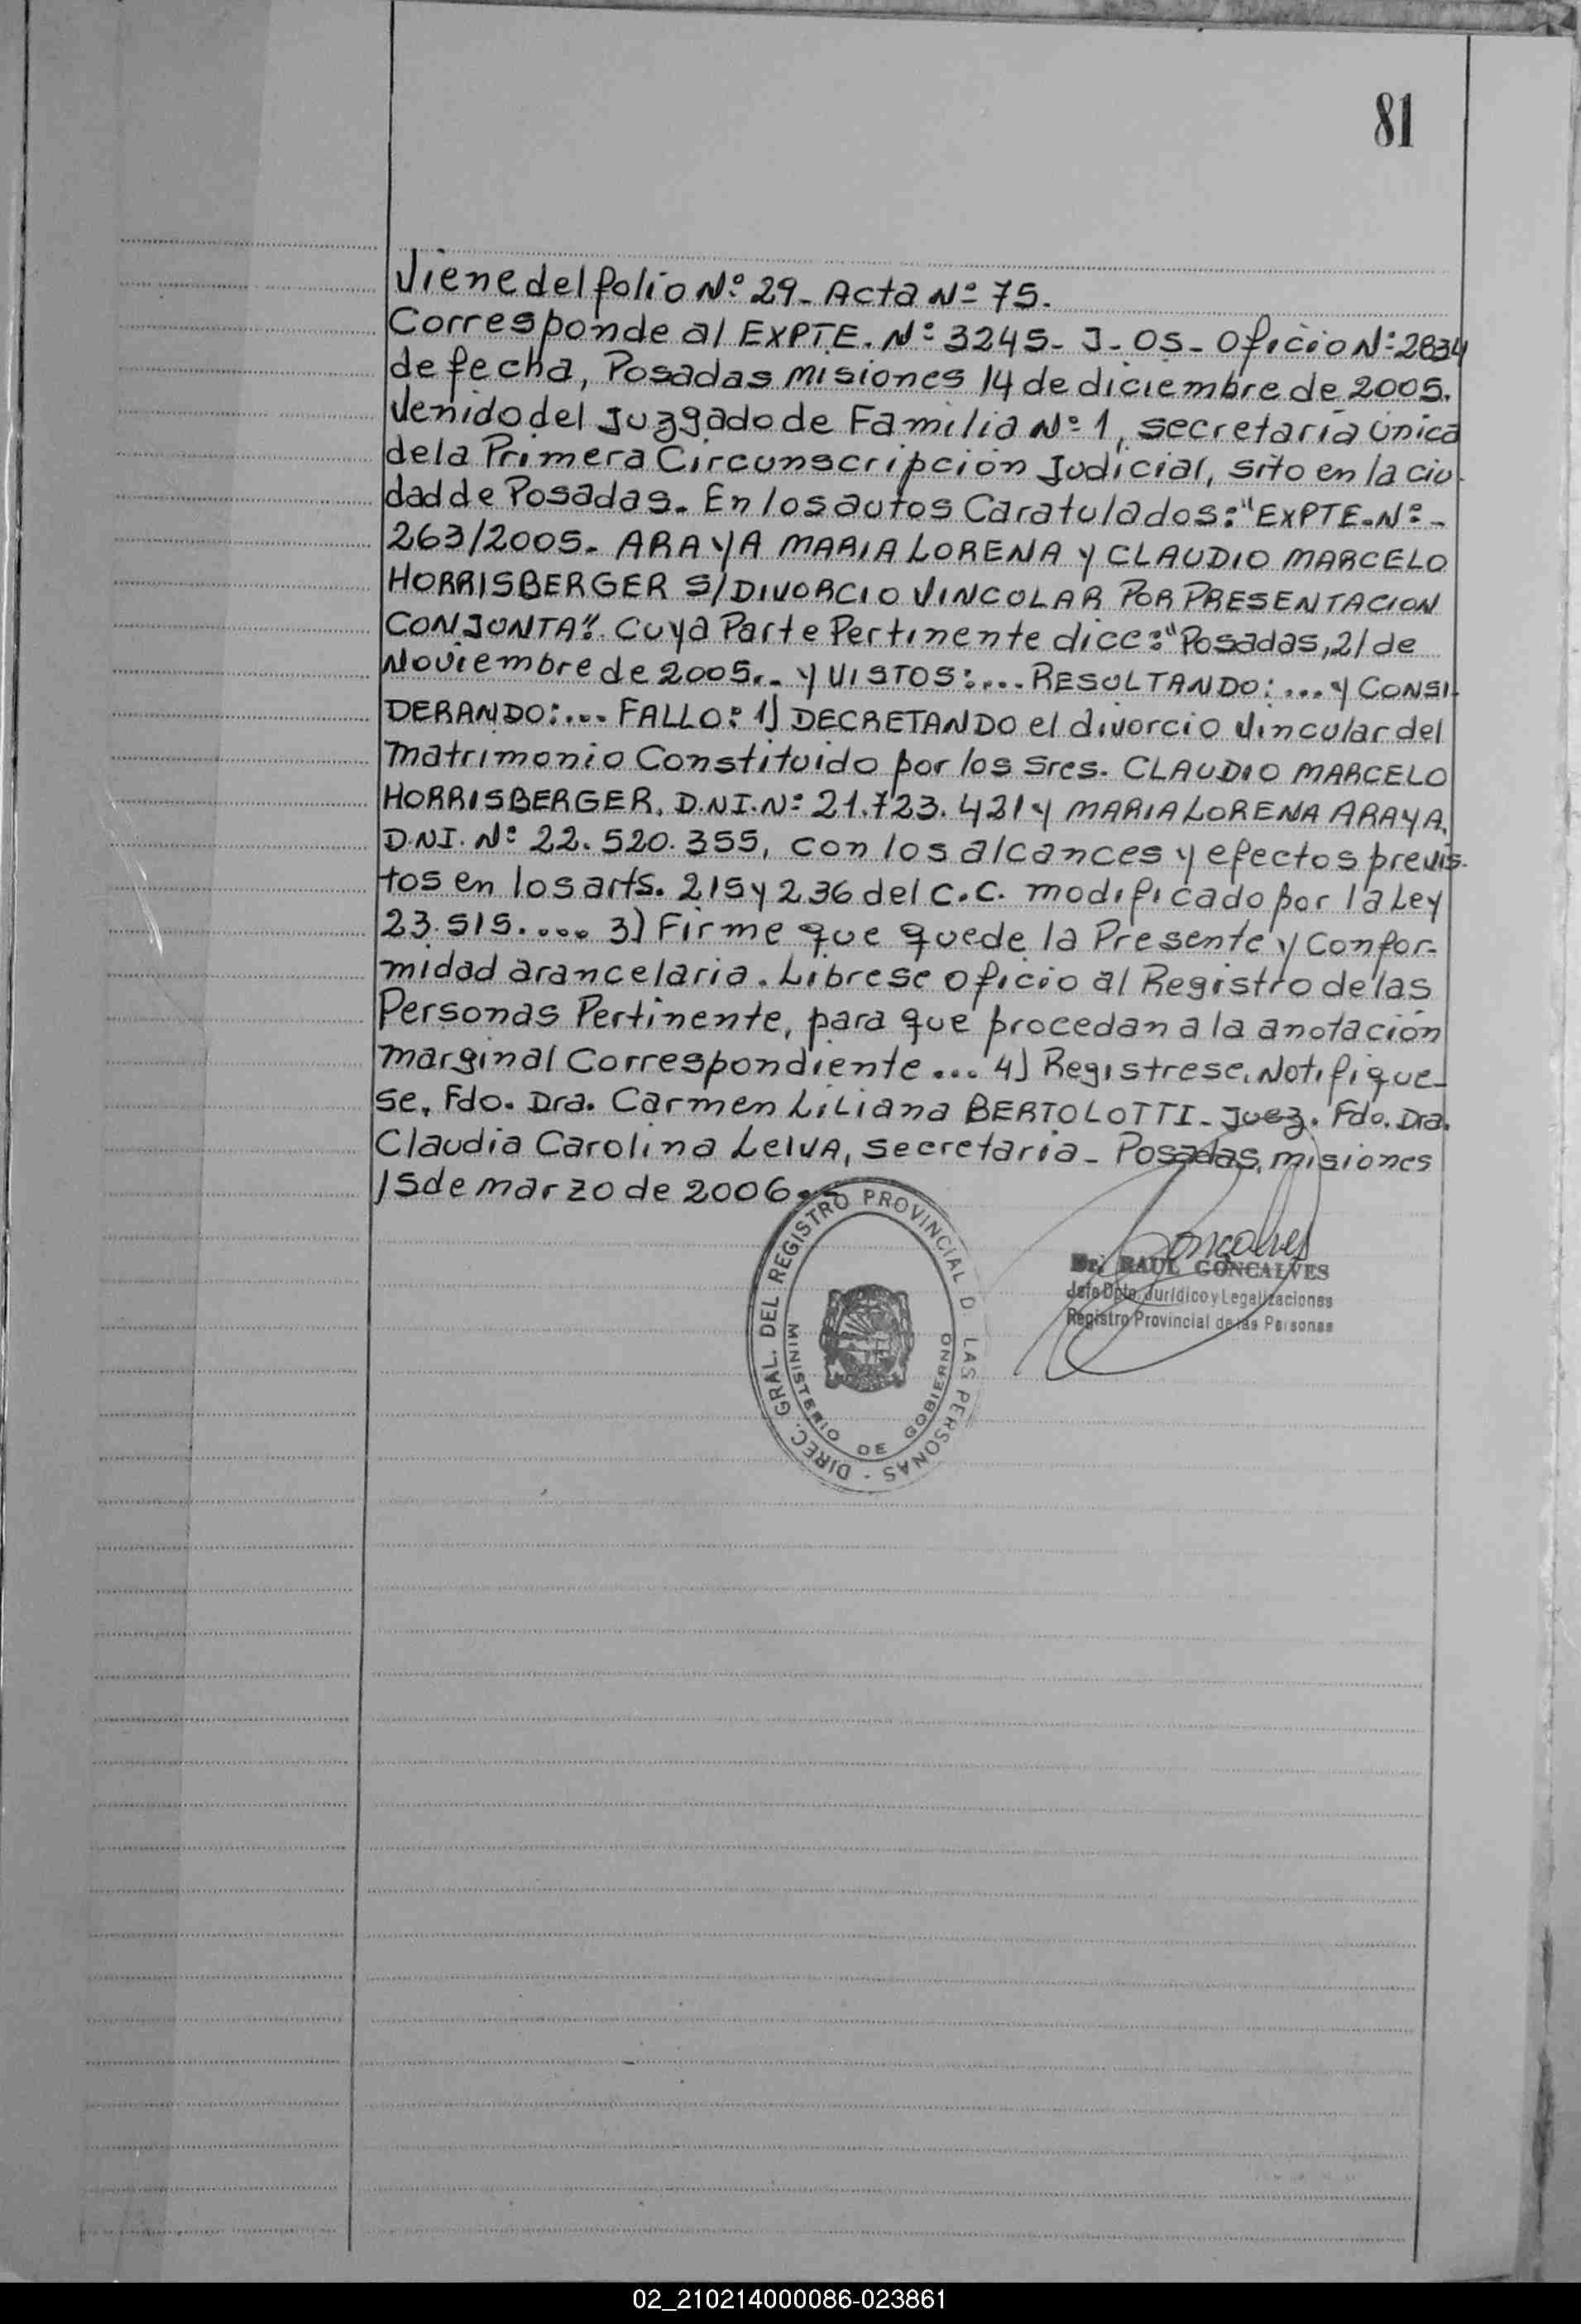 81
Viene del folio Nº 29- Acta Nº 75.
Corresponde al EXPTE. Nº 3245- J- 05- Oficio Nº 2834
de fecha, Posadas Misiones 14 de diciembre de 2005.
Venido del Juzgado de Familia Nº 1, secretaría única
de la Primera Circunscripción Judicial, sito en la ciu-
dad de Posadas. En los autos Caratulados: "EXPTE. Nº-
263/2005- ARAYA MARIA LORENA y CLAUDIO MARCELO
HORRISBERGER S/DIVORCIO VINCULAR POR PRESENTACION
CONJUNTA". Cuya Parte Pertinente dice: "Posadas, 21 de
Noviembre de 2005.- Y VISTOS:... RESULTANDO:... y CONSI-
DERANDO:... FALLO: 1) DECRETANDO el divorcio vincular del
matrimonio Constituido por los Sres. CLAUDIO MARCELO
HORRISBERGER. D.N.I. Nº 21.723.421 y MARIA LORENA ARAYA.
D.N.I. Nº 22.520.355, con los alcances y efectos previs-
tos en los arts. 215 y 236 del C.C. modificado por la Ley
23.515.... 3) Firme que quede la Presente y Confor-
midad arancelaria. Librese oficio al Registro de las
Personas Pertinente, para que procedan a la anotación
marginal Correspondiente... 4) Registrese. Notifique-
se. Fdo. Dra. Carmen Liliana BERTOLOTTI- Juez. Fdo. Dra.
Claudia Carolina LEIVA, secretaria- Posadas, misiones
15 de marzo de 2006.-
DIREC. GRAL. DEL REGISTRO PROVINCIAL D. LAS PERSONAS -
MINISTERIO DE GOBIERNO
Gonçalves
Dr. RAUL GONÇALVES
Jefe Dpto. Jurídico y Legalizaciones
Registro Provincial de las Personas
02_210214000086-023861